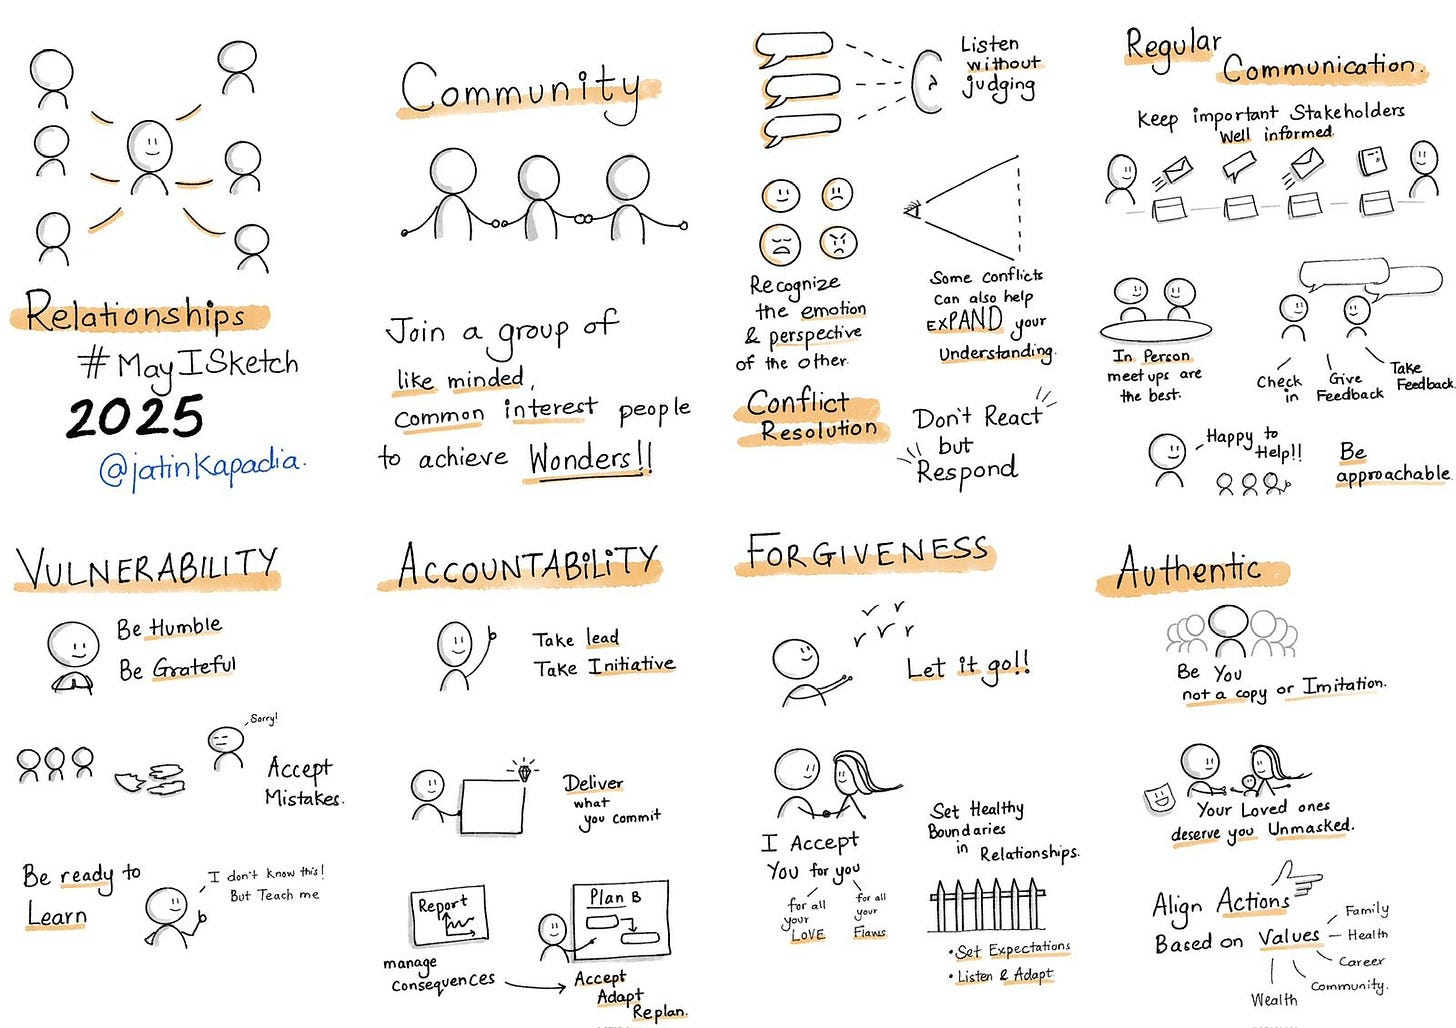 Relationships
#MayISketch
2025
@jatinkapadia.
Community
Join a group of
like minded,
common interest people
to achieve Wonders!!
Listen
without
judging
Recognize
the emotion
& perspective
of the other.
Some conflicts
can also help
EXPAND your
Understanding.
Conflict
Resolution
Don't React
but
Respond
Regular
Communication.
Keep important Stakeholders
Well informed.
In Person
meet ups are
the best.
Check
in
Give
Feedback
Take
Feedback
Happy to
Help!!
Be
approachable.
VULNERABILITY
Be Humble
Be Grateful
Sorry!
Accept
Mistakes.
Be ready to
Learn
I don't know this!
But Teach me
ACCOUNTABILITY
Take lead
Take Initiative
Deliver
what
you commit
Report
manage
consequences
Plan B
Accept
Adapt
Replan.
FORGIVENESS
Let it go!!
I Accept
You for you
for all
your
LOVE
for all
your
Flaws
Set Healthy
Boundaries
in
Relationships.
• Set Expectations
• Listen & Adapt.
Authentic
Be You
not a copy or Imitation.
Your Loved ones
deserve you Unmasked.
Align Actions
Based on Values
Family
Health
Career
Community.
Wealth